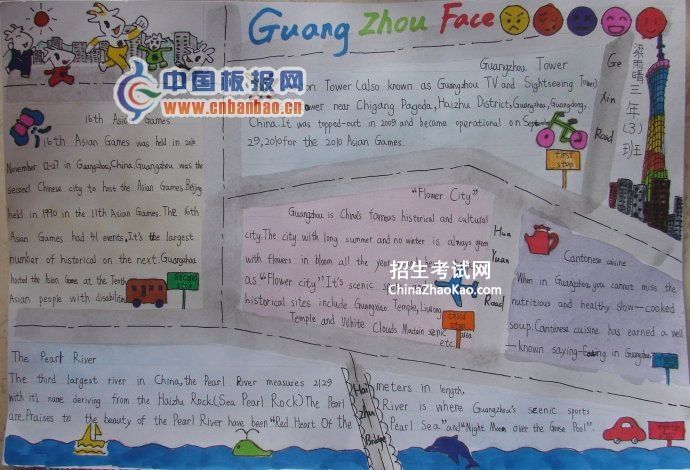 Guang Zhou Face
中国板报网
www.cnbanbao.cn
梁雨晴三年(3)班
Guangzhou Tower
on Tower (also known as Guangzhou TV and Sightseeing Tower)
ower near Chigang Pagoda, Haizhu District, Guangzhou, Guangdong,
China. It was topped-out in 2009 and became operational on September
29, 2010 for the 2010 Asian Games.
first stop
Road
16th Asian Games
16th Asian Games was held in 2010
November 12-27 in Guangzhou, China. Guangzhou was the
second Chinese city to host the Asian Games. Beijing
held in 1990 in the 11th Asian Games. The 16th
Asian Games had 41 events, It's the largest
number of historical on the next. Guangzhou
hosted the Asian Games at the Tenth
Asian people with disabilities
second stop
"Flower City"
Guangzhou is China's famous historical and cultural
city. The city with long summer and no winter is always green
with flowers in bloom all the year
as "Flower city" It's scenic
historical sites include Guangxiao Temple, Liurong
Temple and White Clouds scenic area
etc.
third stop
Hua Yuan Road
招生考试网
ChinaZhaoKao.com
Cantonese cuisine
When in Guangzhou, you cannot miss the
nutritious and healthy slow—cooked
soup. Cantonese cuisine has earned a well
—known saying—Eating in Guangzhou
The Pearl River
The third largest river in China, the Pearl River measures 2129 meters in length,
with it's name deriving from the Haizhu Rock (Sea Pearl Rock) The Pearl River is where Guangzhou's scenic sports
are. Praises to the beauty of the Pearl River have been "Red Heart Of the Pearl Sea" and "Night Moon over the Goose Pool".
Hai Zhu Bridge